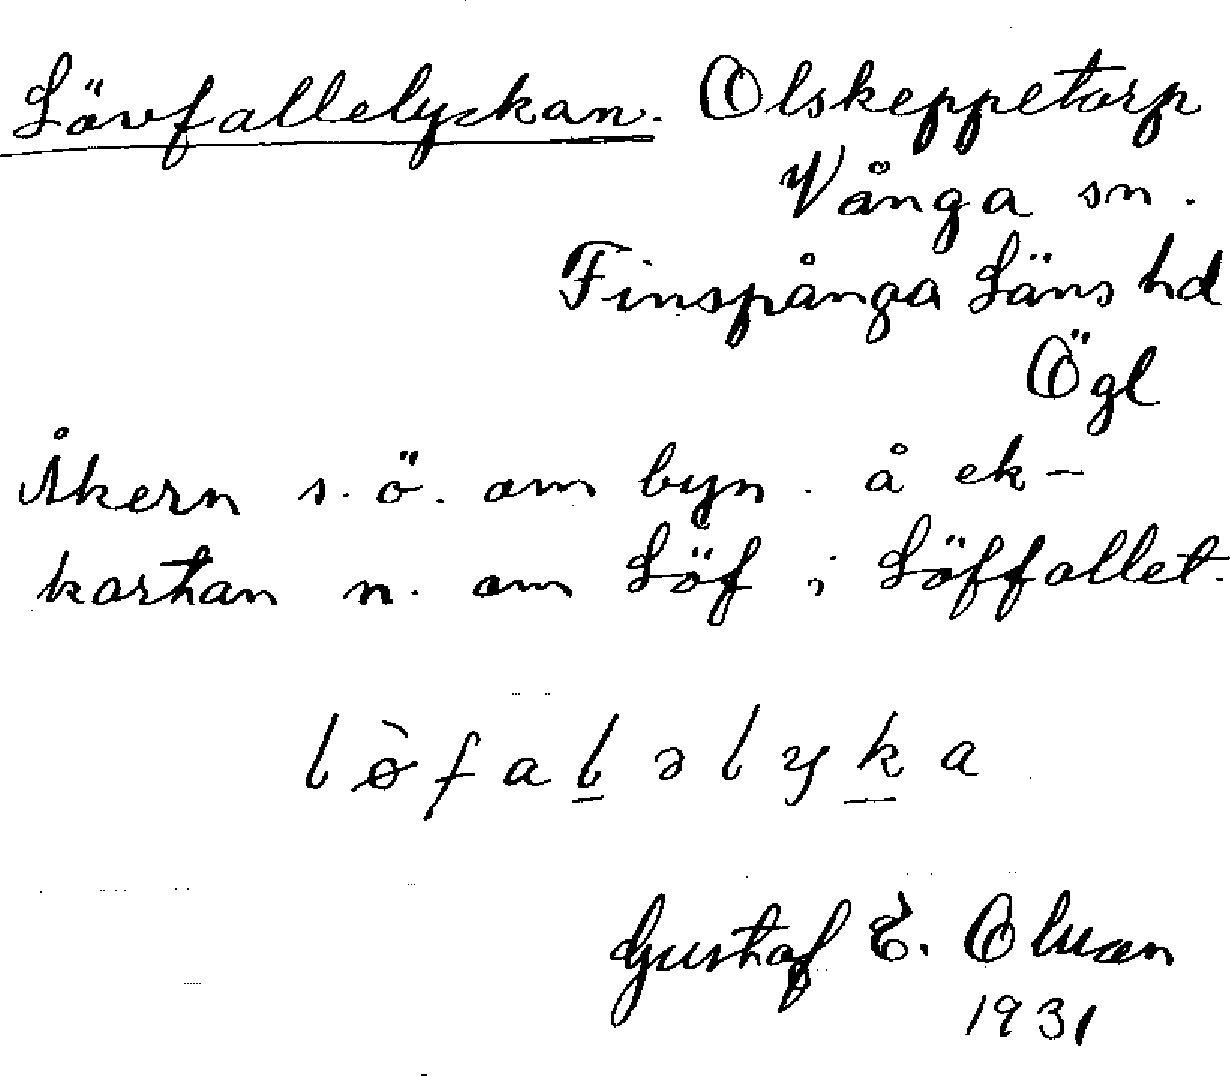 Lövfallelyckan. Olskeppetorp
Vånga sn.
Finspånga Läns hd
Ögl
Åkern s.ö. om byn. å ek-
kartan n. om Löf i Löffallet.
lø̀fal̲əlyk̲a
Gustaf E. Olsson
1931